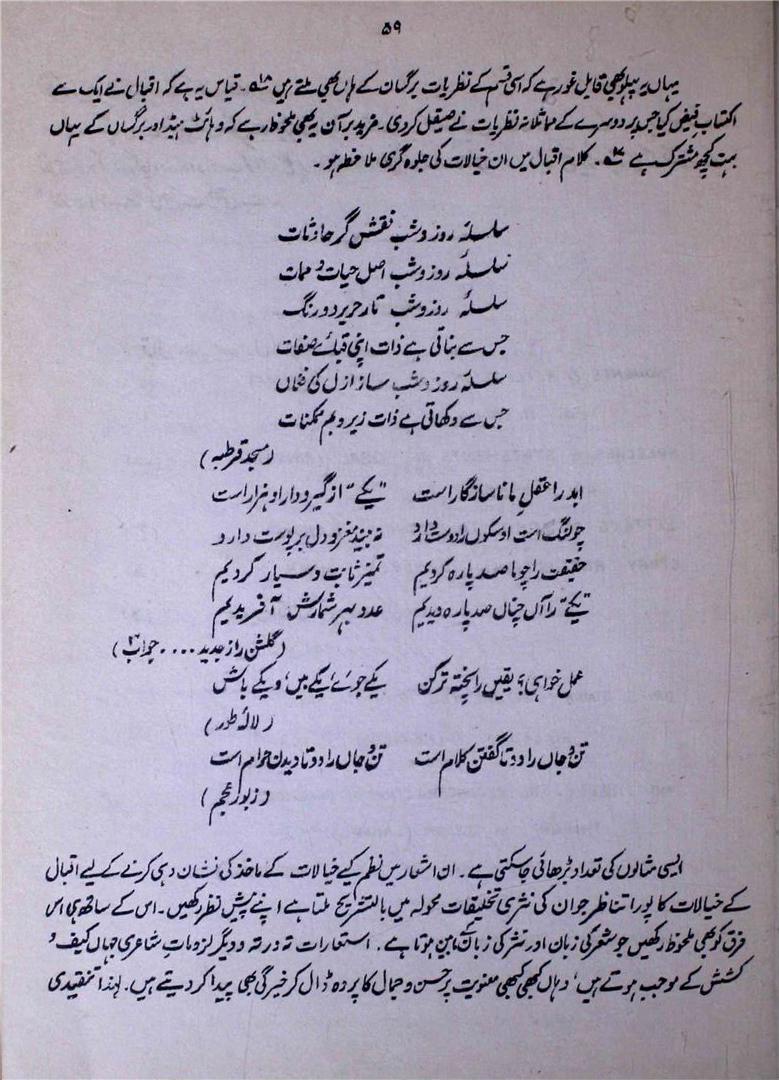 ۵۹
یہاں یہ پہلو بھی قابل غور ہے کہ اسی قسم کے نظریات برگساں کے ہاں بھی ملتے ہیں ۔ قیاس یہ ہے کہ اقبال نے ایک سے
اکتساب فیض کیا جس پر دوسرے کے مماثلانہ نظریات نے صیقل کردی ۔ مزید برآں یہ بھی ملحوظ رہے کہ وہائٹ ہیڈ اور برگساں کے یہاں
بہت کچھ مشترک ہے ۔ کلام اقبال میں ان خیالات کی جلوہ گری ملاحظہ ہو ۔
سلسلۂ روز و شب نقش گر حادثات
سلسلۂ روز و شب اصل حیات و ممات
سلسلۂ روز و شب تار حریر دو رنگ
جس سے بناتی ہے ذات اپنی قبائے صفات
سلسلۂ روز و شب ساز ازل کی فغاں
جس سے دکھاتی ہے ذات زیر و بم ممکنات
(مسجد قرطبہ)
ابد را عقلِ ما ناسازگار است "یکے" از گیر و دار او ہزار است
چو لنگ است او سکوں را دوست دارد نہ بیند مغز و دل بر پوست دارد
حقیقت را چو ما صد پارہ کردیم تمیز ثابت و سیار کردیم
"یکے" را آں چناں صد پارہ دیدیم عدد بہر شمارش آفریدیم
(گلشن راز جدید .... جواب ۳)
عمل خواہی؟ یقیں را پختہ تر کن یکے جوئے، یکے بیں، و یکے باش
(لالۂ طور)
تن و جاں را دو تا گفتن کلام است تن و جاں را دو تا دیدن حرام است
(زبور عجم)
ایسی مثالوں کی تعداد بڑھائی جاسکتی ہے ۔ ان اشعار میں نظم کیے خیالات کے ماخذ کی نشان دہی کرنے کے لیے اقبال
کے خیالات کا پورا تناظر جو ان کی نثری تخلیقات محولہ میں بالتشریح ملتا ہے اپنے پیش نظر رکھیں ۔ اس کے ساتھ ہی اس
فرق کو بھی ملحوظ رکھیں جو شعر کی زبان اور نثر کی زبان کے مابین ہوتا ہے ۔ استعارات تہ در تہ و دیگر لزومات شاعری جہاں کیف و
کشش کے موجب ہوتے ہیں، وہاں کبھی کبھی معنویت پر حسن و جمال کا پردہ ڈال کر خیرگی بھی پیدا کر دیتے ہیں ۔ لہٰذا تنقیدی